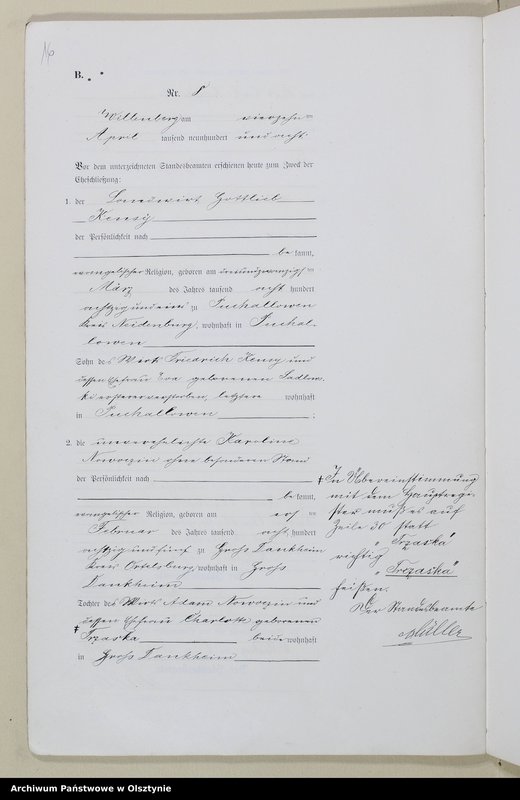 B.
Nr. 8
Willenberg am vierzehnten
April tausend neunhundert und acht.
Vor dem unterzeichneten Standesbeamten erschienen heute zum Zweck der
Eheschließung:
1. der Landwirt Gottlieb
Kensy
der Persönlichkeit nach
be kannt,
evangelischer Religion, geboren am
März des Jahres tausend acht hundert
achtzig und zu Puchallowen
Kreis Neidenburg, wohnhaft in Puchal-
lowen
Sohn des Wirts Friedrich Kensy und
dessen Ehefrau Eva geborenen
ersterer verstorben, letztere wohnhaft
in Puchallowen ;
2. die unverehelichte Karoline
Noworzin ohne besonderen Stand
der Persönlichkeit nach
be kannt,
evangelischer Religion, geboren am
Februar des Jahres tausend acht hundert
achtzig und fünf zu Groß Dankheim
Kreis Ortelsburg, wohnhaft in Groß
Dankheim
Tochter des Wirts Adam Noworzin und
dessen Ehefrau Charlotte geborenen
Trzaska beide wohnhaft
in Groß Dankheim
In Übereinstimmung
mit dem Hauptregi-
ster muß es auf
Zeile 30 statt
„Trzaska“
richtig
„Trezaska“
heißen.
Der Standesbeamte
Müller
Archiwum Państwowe w Olsztynie